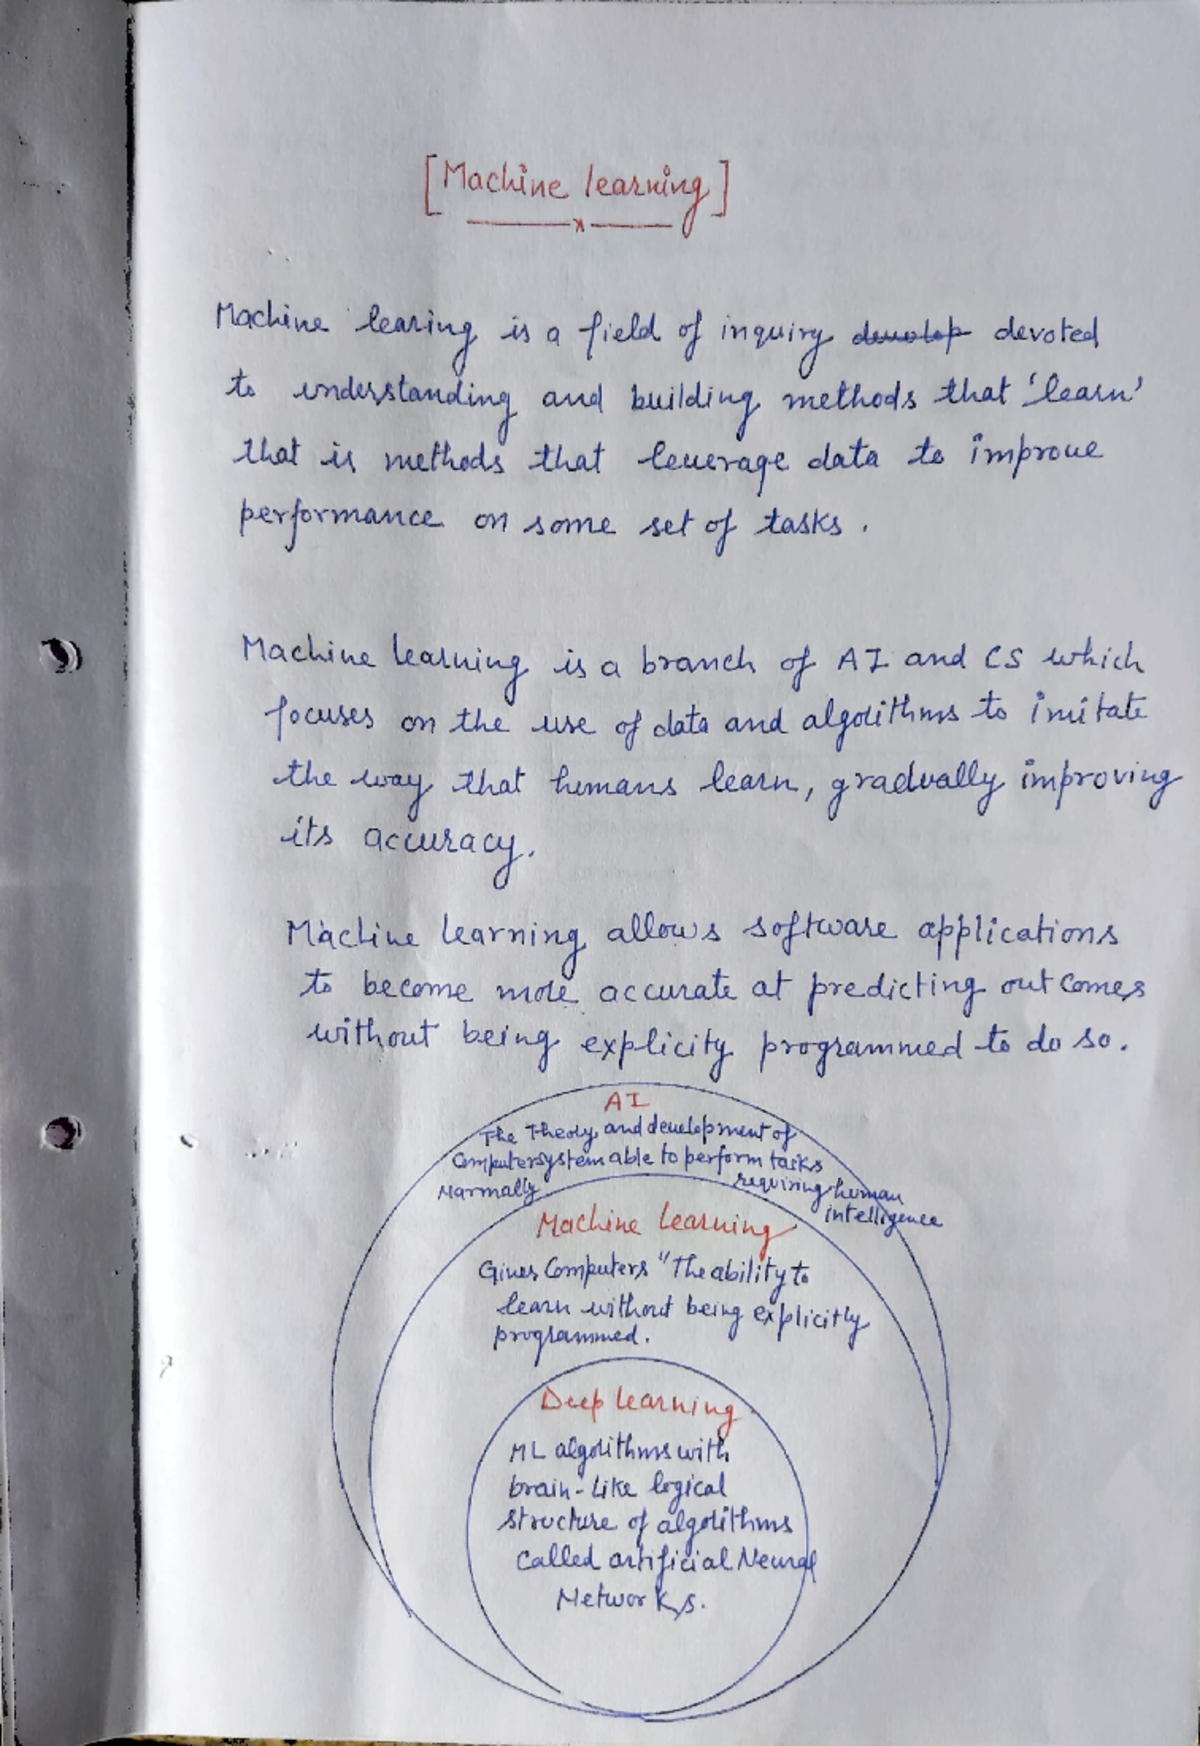 [Machine learning]
Machine learing is a field of inquiry develop devoted
to understanding and building methods that 'learn'
that is methods that leverage data to improve
performance on some set of tasks.
Machine learning is a branch of AI and CS which
focuses on the use of data and algorithms to imitate
the way that humans learn, gradually improving
its accuracy.
Machine learning allows software applications
to become more accurate at predicting outcomes
without being explicity programmed to do so.
AI
The Theory and development of
Computersystem able to perform tasks
Normally requiring human
intelligence
Machine learning
Gives Computers "The ability to
learn without being explicitly
programmed.
Deep learning
ML algorithms with
brain-like logical
structure of algorithms
called artificial Neural
Networks.